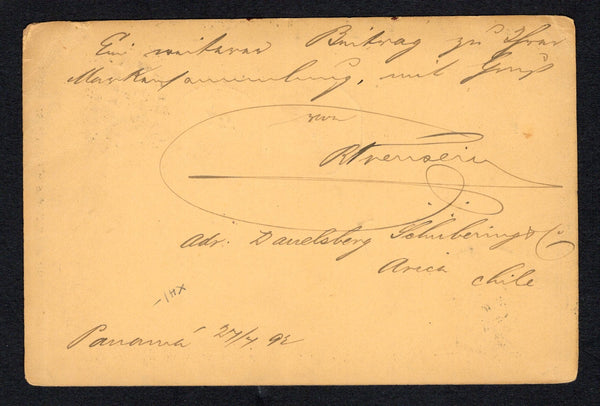 Ein weiterer Beitrag zu Ihrer
Markensammlung, mit Gruß
von
adr. Dauelsberg Schubering & Co
Arica Chile
Panamá 27/4 92